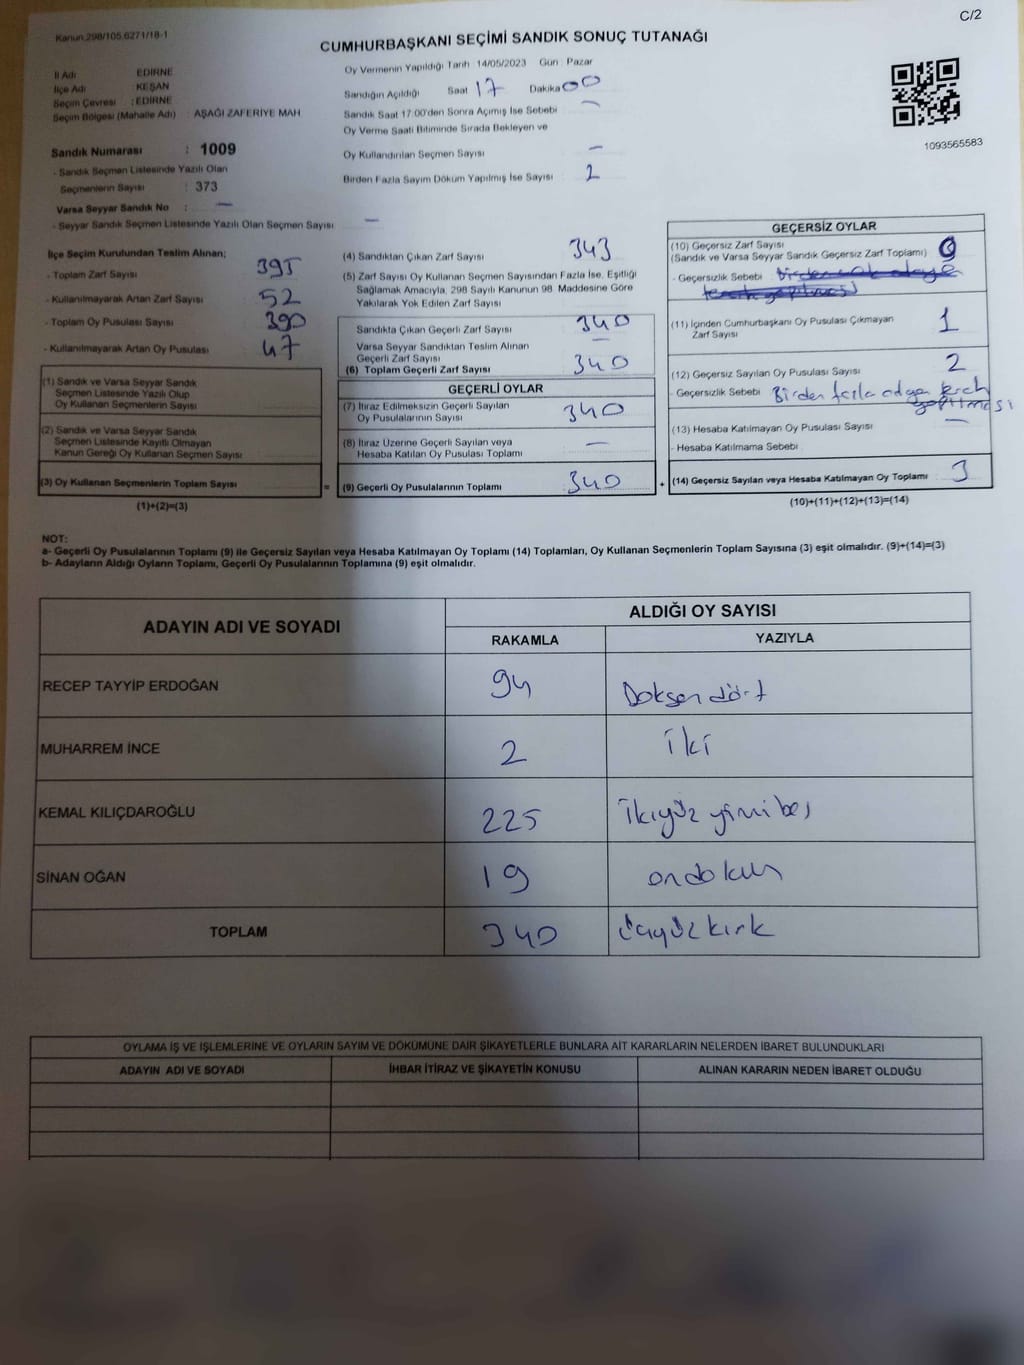 C/2
Kanun.298/105.6271/18-1
CUMHURBAŞKANI SEÇİMİ SANDIK SONUÇ TUTANAĞI
İl Adı EDİRNE
İlçe Adı KEŞAN
Seçim Çevresi : EDİRNE
Seçim Bölgesi (Mahalle Adı) AŞAĞI ZAFERİYE MAH
Sandık Numarası : 1009
- Sandık Seçmen Listesinde Yazılı Olan
Seçmenlerin Sayısı : 373
Varsa Seyyar Sandık No : —
- Seyyar Sandık Seçmen Listesinde Yazılı Olan Seçmen Sayısı —
Oy Vermenin Yapıldığı Tarih 14/05/2023 Gün : Pazar
Sandığın Açıldığı Saat 17 Dakika 00
Sandık Saat 17:00'den Sonra Açımış İse Sebebi —
Oy Verme Saati Bitiminde Sırada Bekleyen ve
Oy Kullandırılan Seçmen Sayısı —
Birden Fazla Sayım Döküm Yapılmış İse Sayısı
1093565583
İlçe Seçim Kurulundan Teslim Alınan;
- Toplam Zarf Sayısı 395
- Kullanılmayarak Artan Zarf Sayısı 52
- Toplam Oy Pusulası Sayısı 390
- Kullanılmayarak Artan Oy Pusulası 47
(1) Sandık ve Varsa Seyyar Sandık
Seçmen Listesinde Yazılı Olup
Oy Kullanan Seçmenlerin Sayısı
(2) Sandık ve Varsa Seyyar Sandık
Seçmen Listesinde Kayıtlı Olmayan
Kanun Gereği Oy Kullanan Seçmen Sayısı
(3) Oy Kullanan Seçmenlerin Toplam Sayısı
=
(1)+(2)=(3)
(4) Sandıktan Çıkan Zarf Sayısı 343
(5) Zarf Sayısı Oy Kullanan Seçmen Sayısından Fazla İse, Eşitliği
Sağlamak Amacıyla, 298 Sayılı Kanunun 98. Maddesine Göre
Yakılarak Yok Edilen Zarf Sayısı
Sandıkta Çıkan Geçerli Zarf Sayısı 340
Varsa Seyyar Sandıktan Teslim Alınan
Geçerli Zarf Sayısı —
(6) Toplam Geçerli Zarf Sayısı 340
GEÇERLİ OYLAR
(7) İtiraz Edilmeksizin Geçerli Sayılan
Oy Pusulalarının Sayısı 340
(8) İtiraz Üzerine Geçerli Sayılan veya
Hesaba Katılan Oy Pusulası Toplamı —
(9) Geçerli Oy Pusulalarının Toplamı 340
+
GEÇERSİZ OYLAR
(10) Geçersiz Zarf Sayısı
(Sandık ve Varsa Seyyar Sandık Geçersiz Zarf Toplamı)
- Geçersizlik Sebebi
(11) İçinden Cumhurbaşkanı Oy Pusulası Çıkmayan
Zarf Sayısı 1
(12) Geçersiz Sayılan Oy Pusulası Sayısı 2
- Geçersizlik Sebebi Birden fazla adaya tercih
yapılması
(13) Hesaba Katılmayan Oy Pusulası Sayısı —
- Hesaba Katılmama Sebebi
(14) Geçersiz Sayılan veya Hesaba Katılmayan Oy Toplamı 3
(10)+(11)+(12)+(13)=(14)
NOT:
a- Geçerli Oy Pusulalarının Toplamı (9) ile Geçersiz Sayılan veya Hesaba Katılmayan Oy Toplamı (14) Toplamları, Oy Kullanan Seçmenlerin Toplam Sayısına (3) eşit olmalıdır. (9)+(14)=(3)
b- Adayların Aldığı Oyların Toplamı, Geçerli Oy Pusulalarının Toplamına (9) eşit olmalıdır.
ADAYIN ADI VE SOYADI
ALDIĞI OY SAYISI
RAKAMLA YAZIYLA
RECEP TAYYİP ERDOĞAN 94 Doksen dört
MUHARREM İNCE 2 iki
KEMAL KILIÇDAROĞLU 225 ikiyüz yirmi beş
SİNAN OĞAN 19 ondokuz
TOPLAM 340 üçyüz kırk
OYLAMA İŞ VE İŞLEMLERİNE VE OYLARIN SAYIM VE DÖKÜMÜNE DAİR ŞİKAYETLERLE BUNLARA AİT KARARLARIN NELERDEN İBARET BULUNDUKLARI
ADAYIN ADI VE SOYADI İHBAR İTİRAZ VE ŞİKAYETİN KONUSU ALINAN KARARIN NEDEN İBARET OLDUĞU